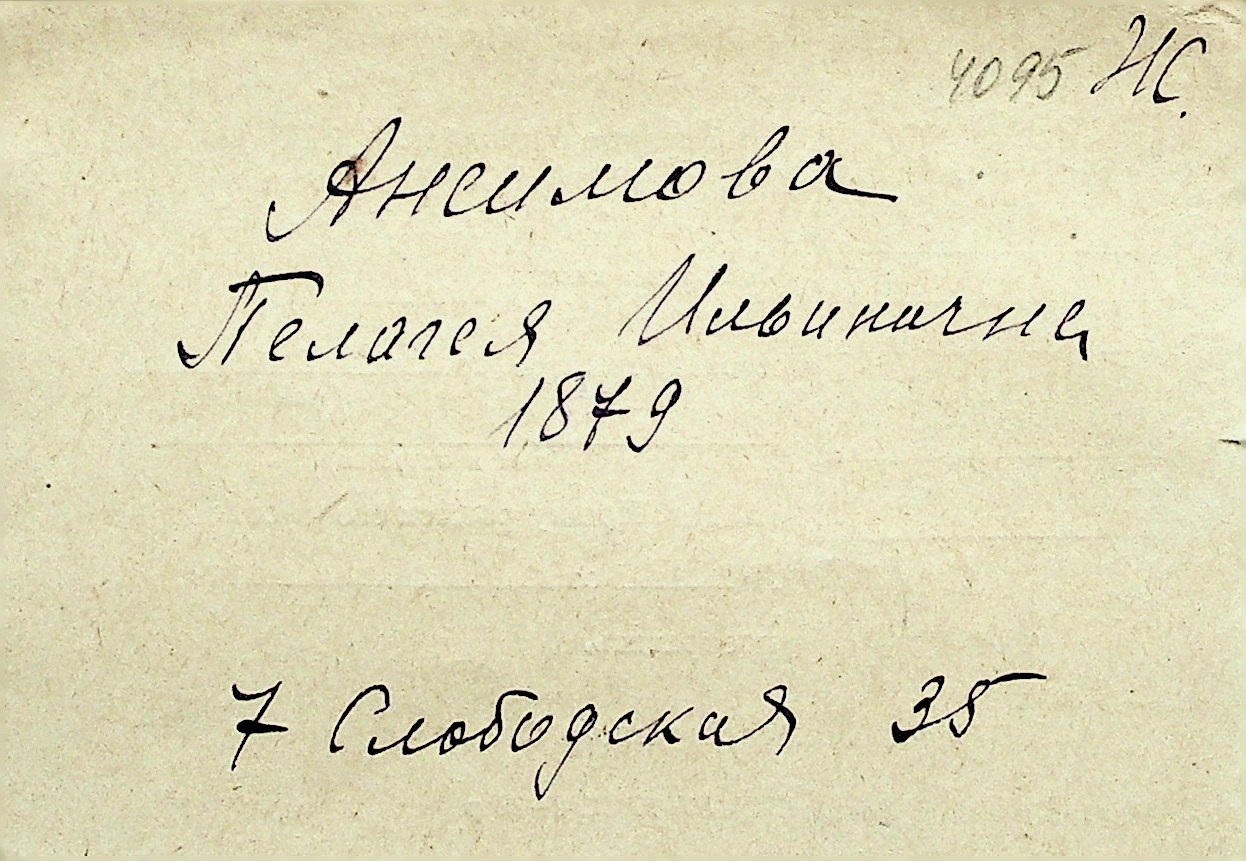 4095 Н.С.
Ансимова
Пелагея Ильинична
1879
7 Слободская 35